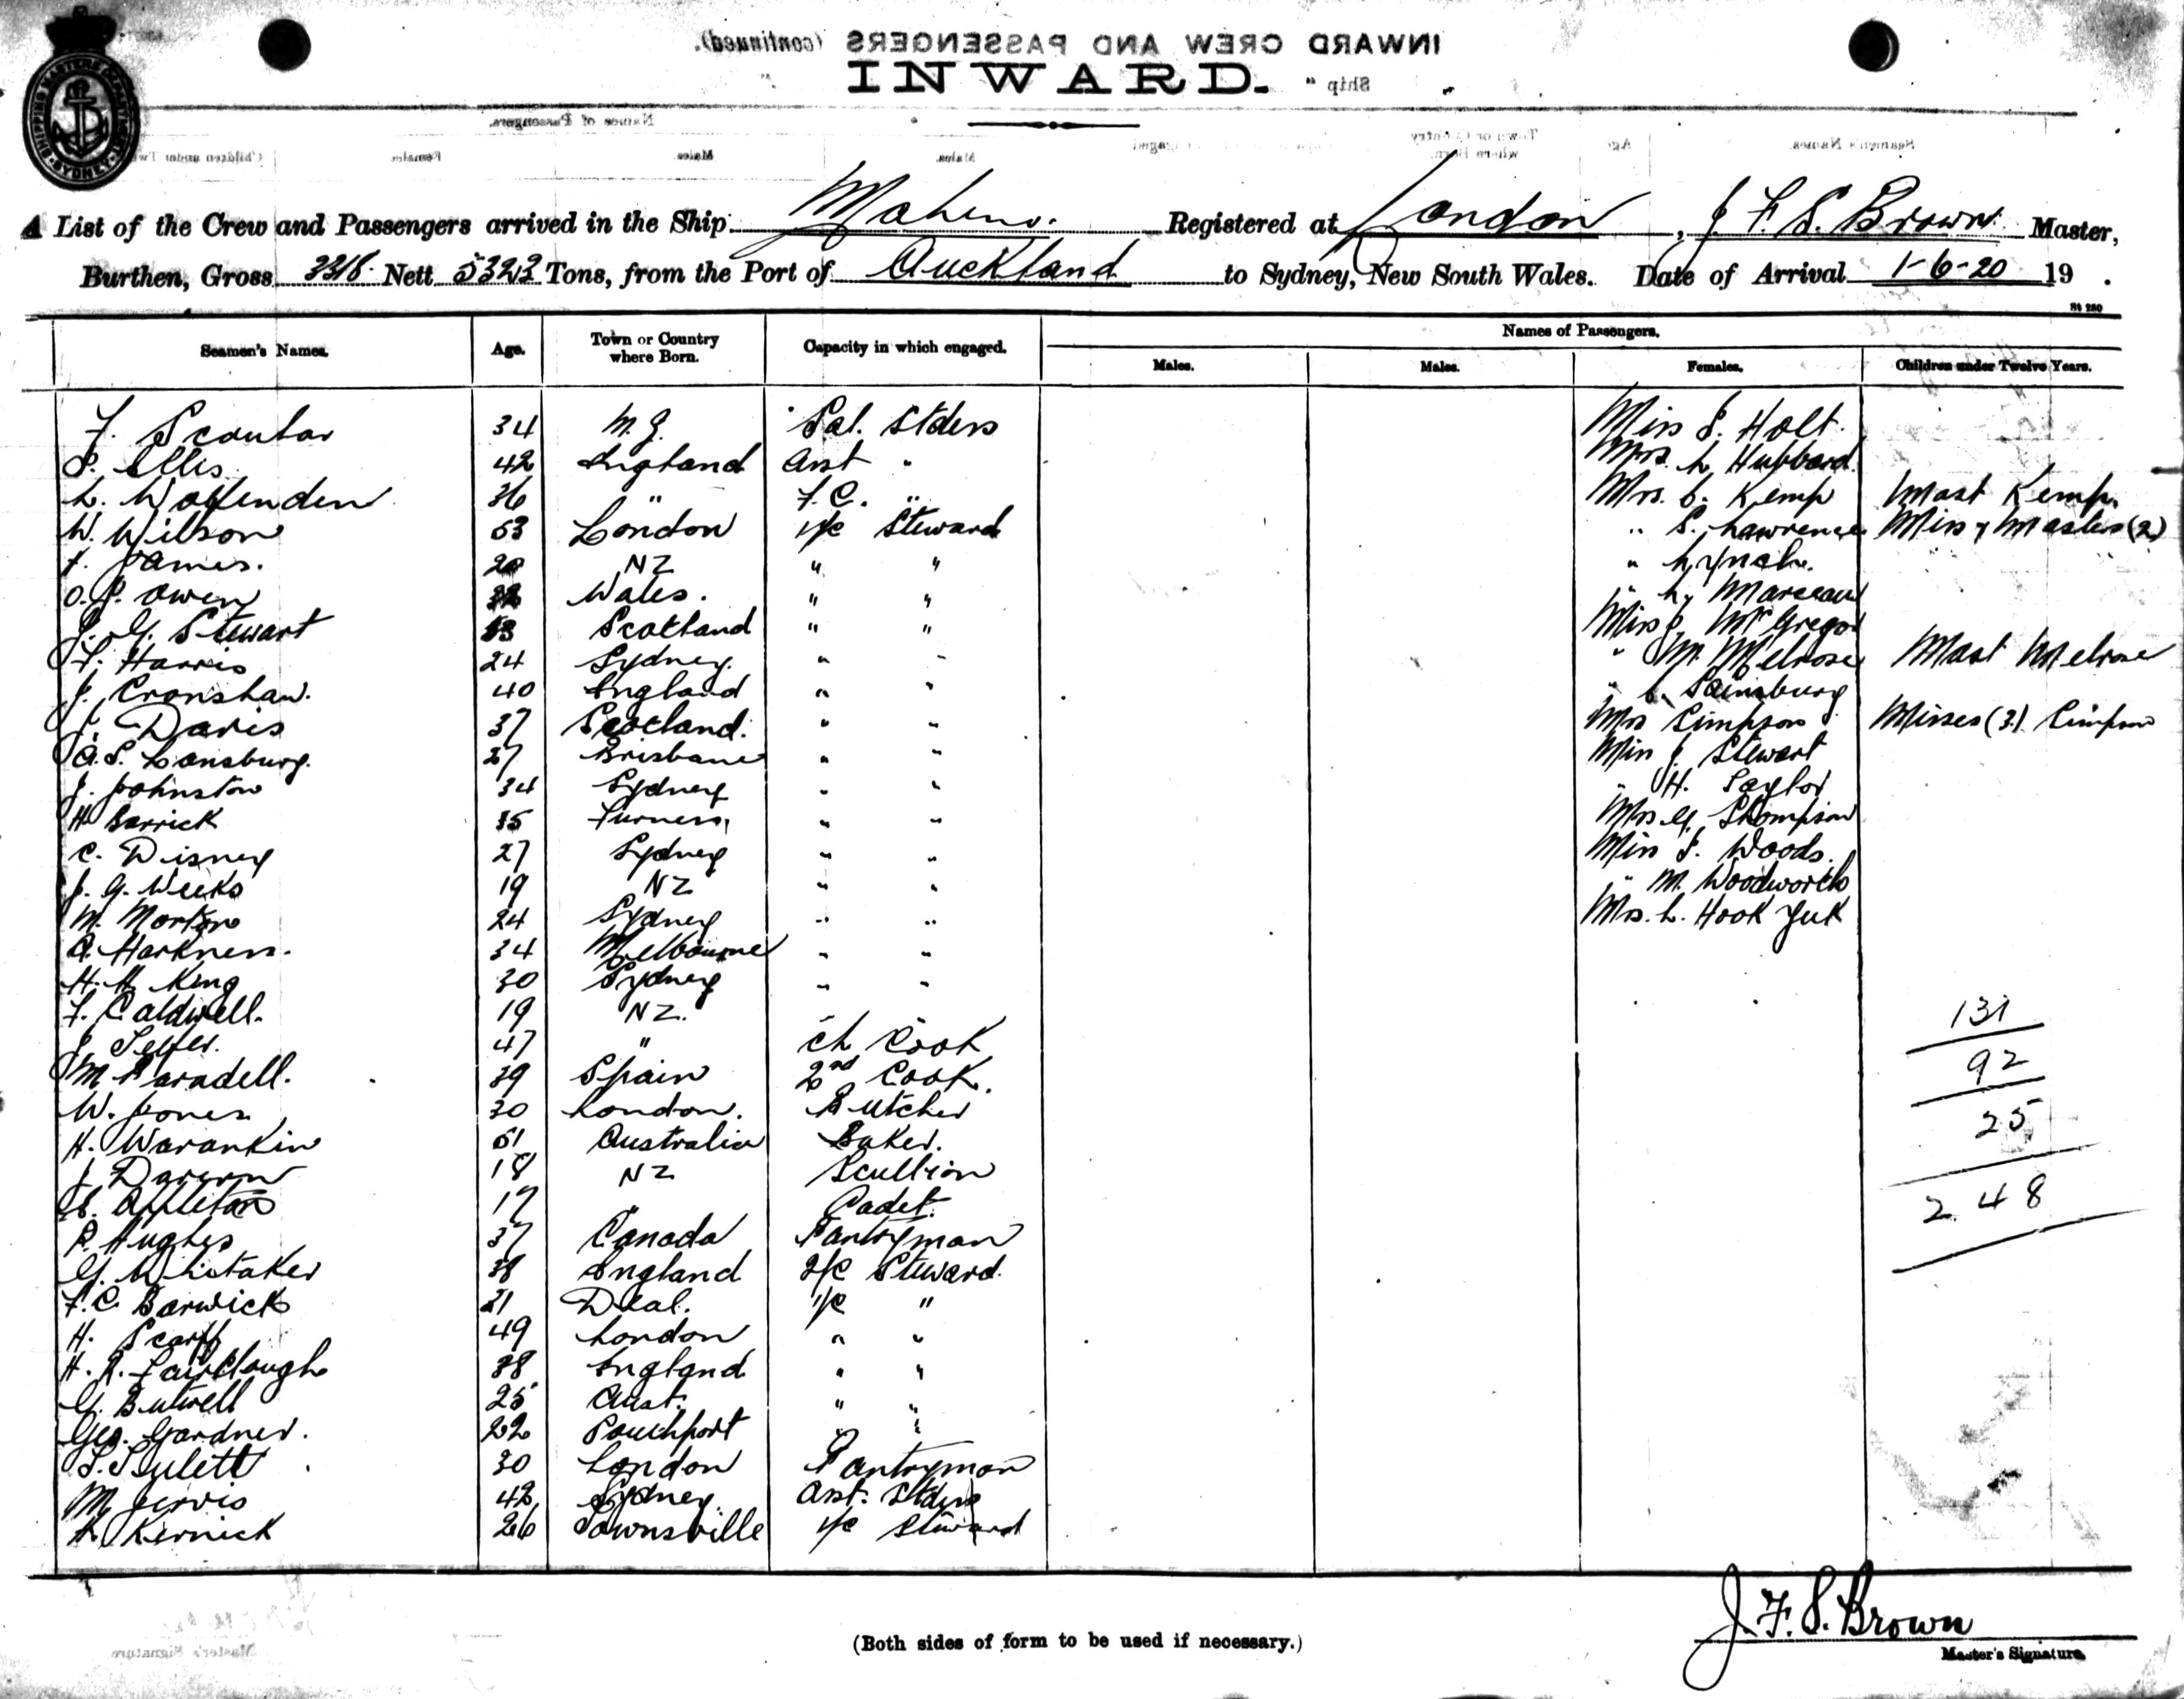 INWARD CREW AND PASSENGERS (continued).
INWARD.
Ship "
SHIPPING MASTERS DEPARTMENT SYDNEY
A List of the Crew and Passengers arrived in the Ship Maheno. Registered at London, J F. S. Brown Master,
Burthen, Gross 3318 Nett 5323 Tons, from the Port of Auckland to Sydney, New South Wales. Date of Arrival 1-6-20 19 .
St 280
Seamen's Names. Age. Town or Country where Born. Capacity in which engaged. Names of Passengers.
Males. Males. Females. Children under Twelve Years.
F. Scoular 34 N.Z. Sal. Stdess Miss S. Holt.
S. Ellis 42 England Asst " Mrs. L Hubbard.
L. Wolfenden 36 " F.C. " Mrs. C. Kemp Mast Kemp
W. Wilson 53 London 1/c Steward " S. Lawrence Miss & Masters (2)
F. James. 20 NZ " " " Lynch.
O. P. Owen Wales. " " " L. Marceau
J. G. Stewart Scotland " " Miss J. McGregor
F. Harris 24 Sydney. " " " M. Melrose Mast Melrose
J. Cronshaw. 40 England " " " C. Sainsbury
J. Davis 37 Scotland. " " Mrs Simpson Misses (3) Simpson
A. S. Lansburg. 27 Brisbane " " Miss J. Stewart
J. Johnston 34 Sydney " " " H. Taylor
H Barrick 35 Furness, " " Mrs G. Thompson
C. Disney 27 Sydney " " Miss J. Woods.
J. G. Weeks 19 NZ " " " M. Woodworth
M. Morton 24 Sydney " " Mrs. L. Hook Yuk
A. Harkness. 34 Melbourne " "
H. H. King 30 Sydney " "
F. Caldwell. 19 NZ. 131
J Telfer. 47 " Ch Cook
M Paradell. 39 Spain 2nd Cook. 92
W. Jones 30 London. Butcher
H. Warankin 51 Australia Baker. 25
J 18 NZ Scullion
Appleton 17 " Cadet. 248
R. Hughes 37 Canada Pantryman
G. Whitaker 38 England 2/c Steward.
F. C. Barwick 21 Deal. 1/c "
H. Scarff 49 London " "
H. R. Fairclough 38 England " "
G. Butwell 25 Aust. " "
Geo. Gardner. 22 Southport " "
30 London Pantryman
M Jervis 42 Sydney. Asst. Stdess
Kernick 26 Townsville 1/c Steward
(Both sides of form to be used if necessary.)
J. F. S. Brown
Master's Signature.